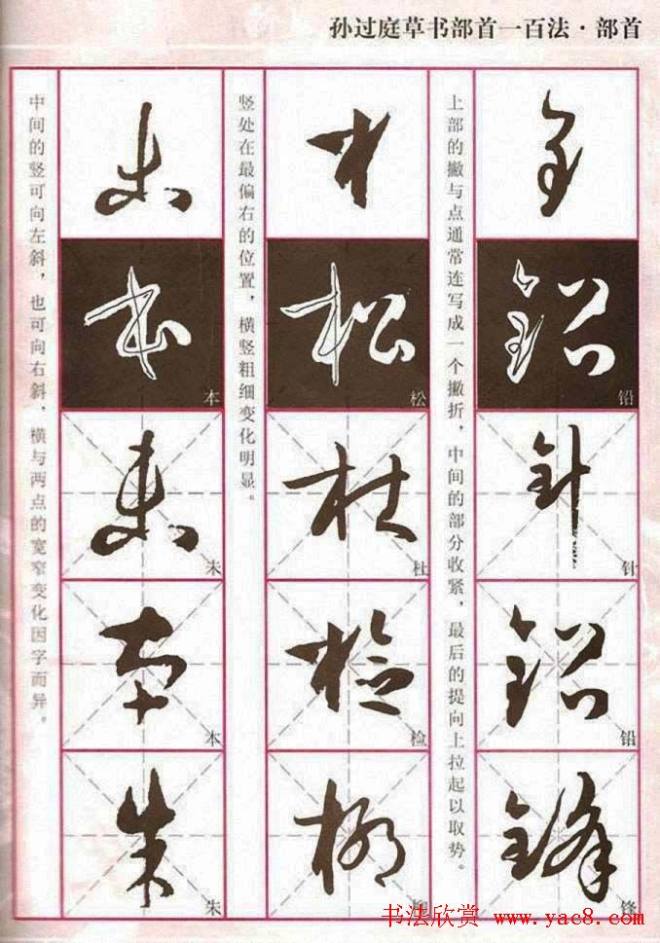 孙过庭草书部首一百法·部首
上部的撇与点通常连写成一个撇折，中间的部分收紧，最后的提向上拉起以取势。
铅
针
铅
锋
竖处在最偏右的位置，横竖粗细变化明显。
松
杜
检
中间的竖可向左斜，也可向右斜，横与两点的宽窄变化因字而异。
本
朱
本
朱
书法欣赏 www.yac8.com